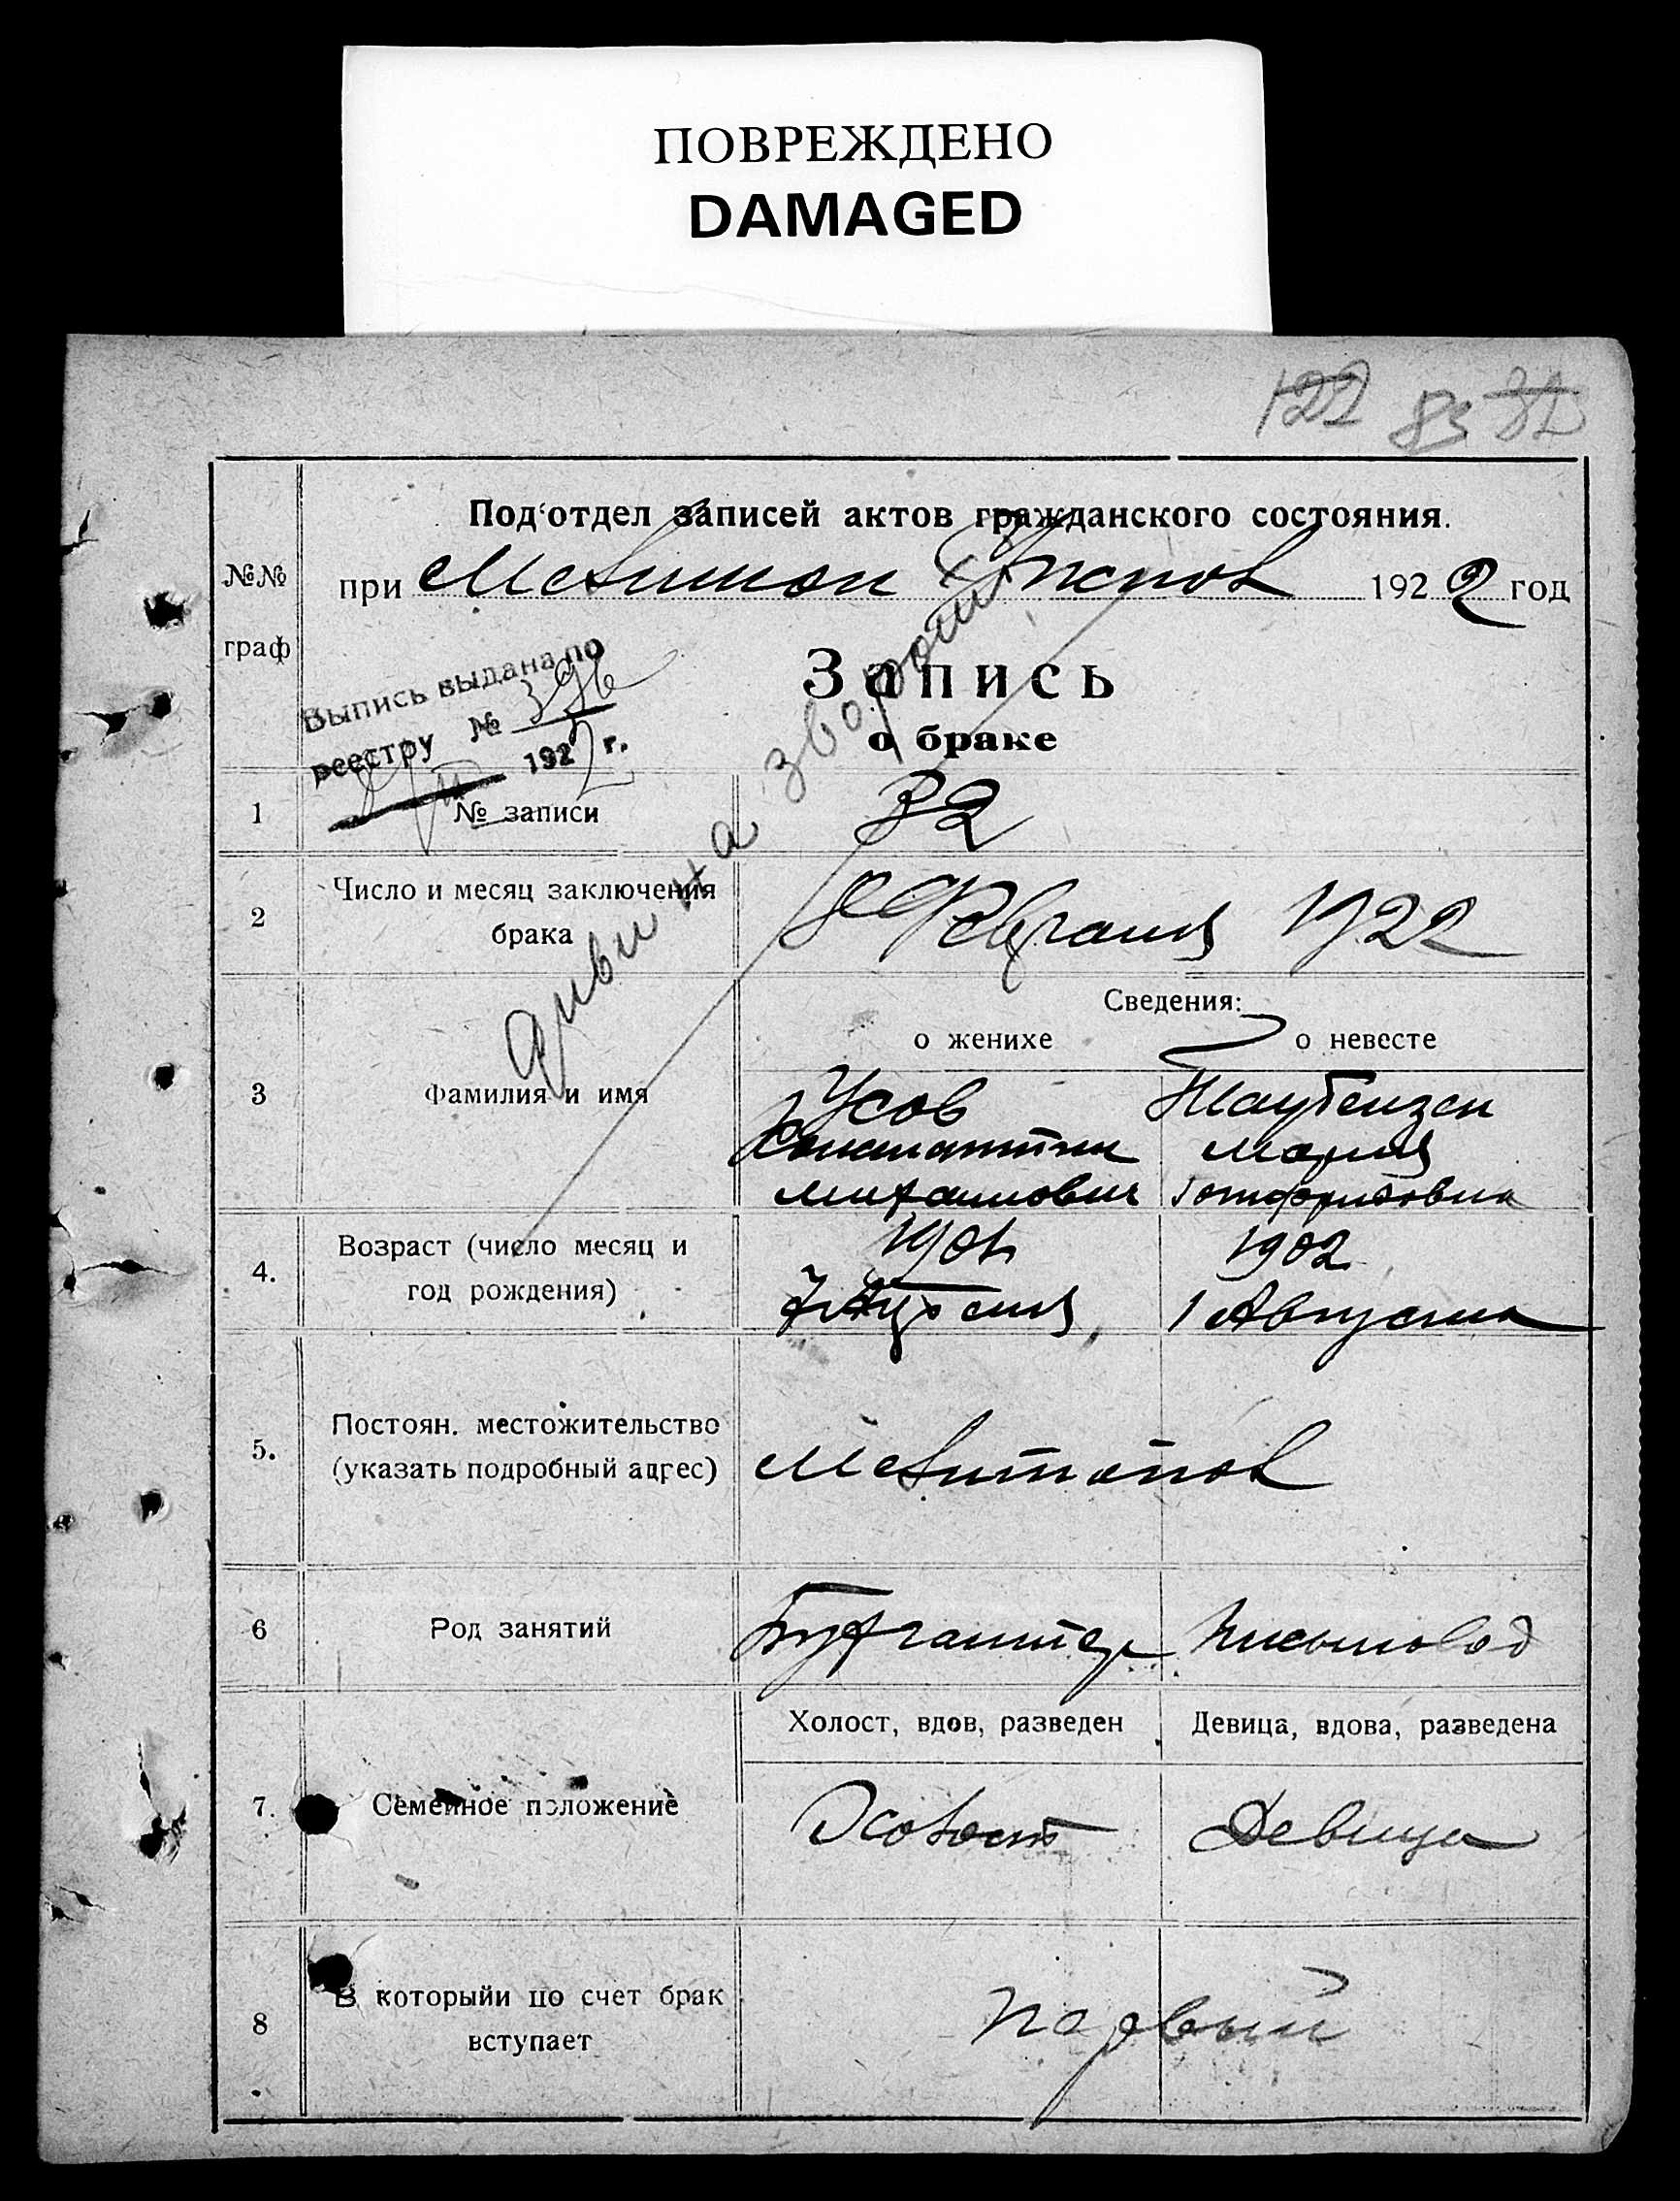 ПОВРЕЖДЕНО
DAMAGED
122 83 32
Под'отдел записей актов гражданского состояния.
№№ граф
при Мелитоп Упспол 1922 год
Выпись выдана по
реестру № 396
1922 г.
Запись
о браке
диви на звороті
1 № записи 32
2 Число и месяц заключения брака Февраля 1922
Сведения:
о женихе о невесте
3 Фамилия и имя
Усов Таубензен
Константин Мария
Михайлович Готфридовна
4. Возраст (число месяц и год рождения)
1901 1902
1 Августа
5. Постоян. местожительство (указать подробный адрес) Мелитопол
6 Род занятий Бухгалтер Письмовод
Холост, вдов, разведен Девица, вдова, разведена
7. Семейное положение Холост Девица
8 В которыйи по счет брак вступает Первый